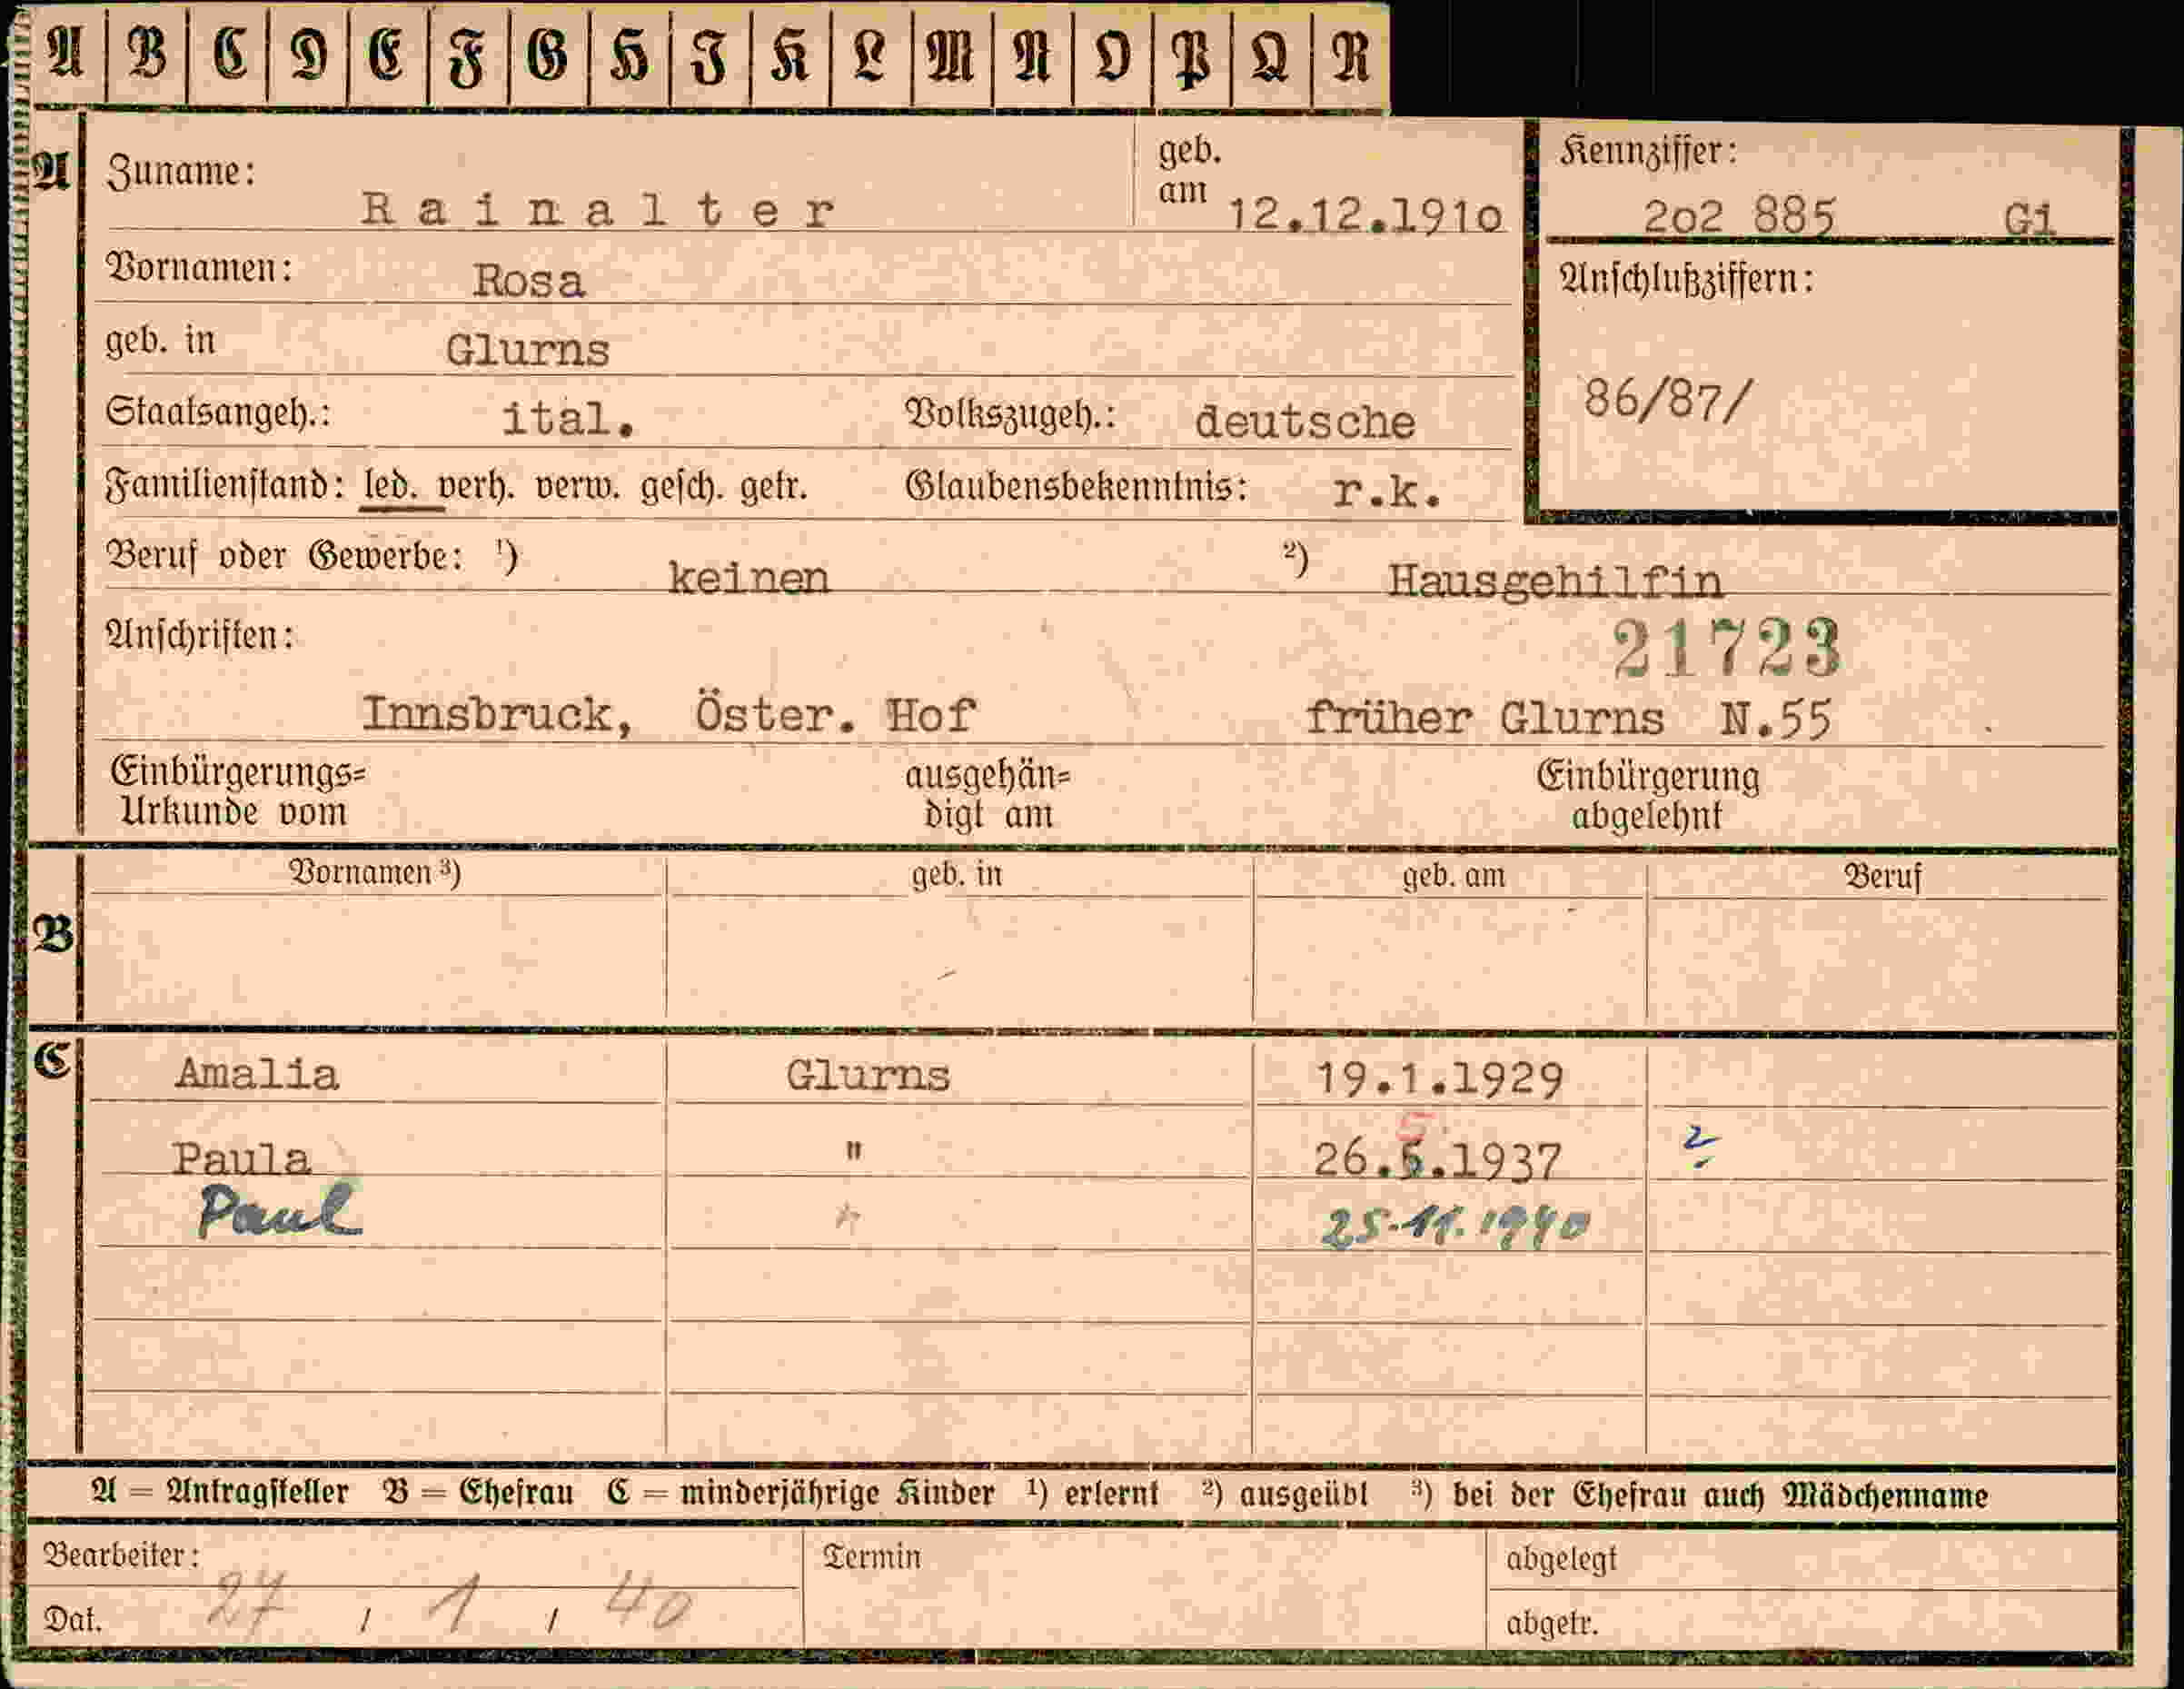 A B C D E F G H I K L M N O P Q R
A Zuname: Rainalter geb. am 12.12.1910 Kennziffer: 202 885 Gi
Vornamen: Rosa Anschlußziffern:
geb. in Glurns
Staatsangeh.: ital. Volkszugeh.: deutsche 86/87/
Familienstand: led. verh. verw. gesch. getr. Glaubensbekenntnis: r.k.
Beruf oder Gewerbe: ¹) keinen ²) Hausgehilfin
Anschriften: 21723
Innsbruck, Öster. Hof früher Glurns N.55
Einbürgerungs= ausgehän= Einbürgerung
Urkunde vom digt am abgelehnt
Vornamen ³) geb. in geb. am Beruf
B
C Amalia Glurns 19.1.1929
5
Paula " 26.5.1937
Paul 25.11.1940
A = Antragsteller B = Ehefrau C = minderjährige Kinder ¹) erlernt ²) ausgeübt ³) bei der Ehefrau auch Mädchenname
Bearbeiter: Termin abgelegt
Dat. 27 / 1 / 40 abgetr.